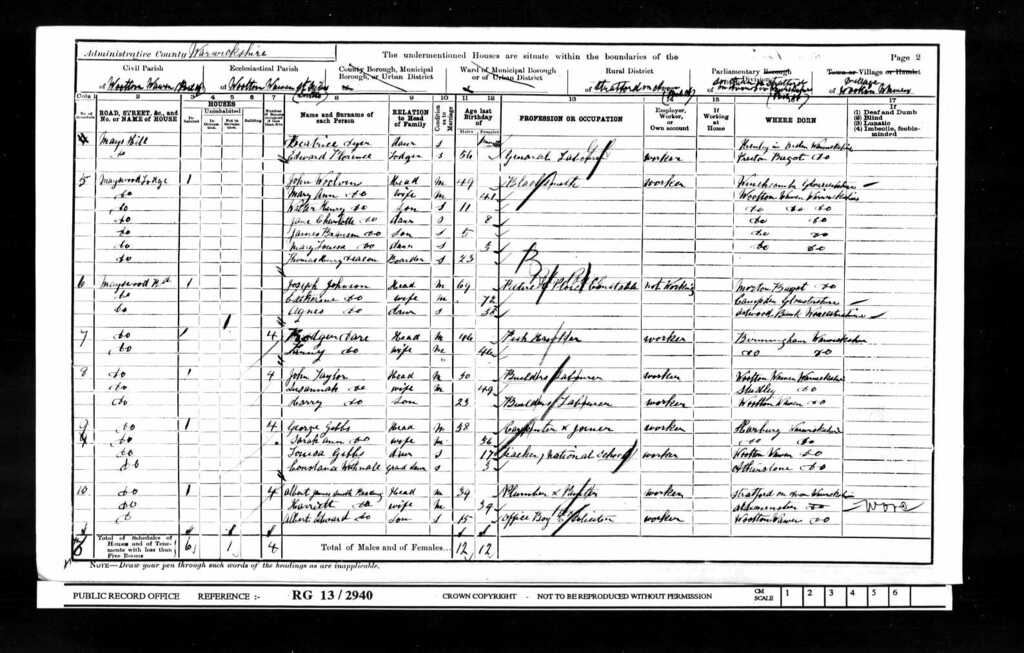 Administrative County Warwickshire
The undermentioned Houses are situate within the boundaries of the
Page 2
Civil Parish
Ecclesiastical Parish
County Borough, Municipal Borough, or Urban District
Ward of Municipal Borough or of Urban District
Rural District
Parliamentary Borough or Division
Town or Village or Hamlet
of Wootton Wawen (Part of)
of Wootton Wawen
of Stratford on Avon
of Wootton Wawen
Cols. 1 2 3 4 5 6 7 8 9 10 11 12 13 14 15 16 17
No. of Schedule
ROAD, STREET, &c., and No. or NAME of HOUSE
HOUSES
Inhabited
Uninhabited
In Occupation
Not in Occupation
Building
Name and Surname of each Person
RELATION to Head of Family
Condition as to Marriage
Age last Birthday of
Males Females
PROFESSION OR OCCUPATION
Employer, Worker, or Own account
If Working at Home
WHERE BORN
If
(1) Deaf and Dumb
(2) Blind
(3) Lunatic
(4) Imbecile, feeble-minded
4 Mays Hill Beatrice daur S Henley in Arden Warwickshire
do Edward Florence Lodger S 56 General Labourer worker Preston Bagot do
5 Mayswood Lodge 1 John Head M 49 Blacksmith worker Winchcombe Gloucestershire
do Mary Ann do wife M 41 Wootton Wawen Warwickshire
do Walter Henry do Son S 11 do do do
do Jane Charlotte do daur S 8 do do
do James do Son S 5 do do
do Mary Louisa do daur S 3 do do
do Thomas Boarder S 23
6 Mayswood Rd 1 Joseph Johnson Head M 69 Retired Police Constable not working Morton Bagot do
do Catherine do wife M 72 Campden Gloucestershire
do Agnes do daur S 38 Worcestershire
1
7 do 1 4 Head M 46 worker Birmingham Warwickshire
do do wife M 46 do do
8 do 1 4 John Taylor Head M 50 Builders Labourer worker Wootton Wawen Warwickshire
do Susannah do wife M 49 Studley do
do Harry do Son 23 Builders Labourer worker Wootton Wawen do
9 do 1 4 George Gibbs Head M 58 Carpenter & joiner worker Harbury Warwickshire
do Sarah Ann do wife M 56 do do
do Louisa Gibbs daur S 17 Teacher (National School) worker Wootton Wawen do
do Constance grand daur S 3 Atherstone do
10 do 1 4 Albert James Smith Head M 39 Plumber & Painter worker Stratford on Avon Warwickshire
do Harriett do wife M 39 do Worc
do Albert Edward do Son S 15 Office Boy worker Wootton Wawen do
Total of Schedules of Houses and of Tenements with less than Five Rooms
6 1 4
Total of Males and of Females... 12 12
NOTE—Draw your pen through such words of the headings as are inapplicable.
PUBLIC RECORD OFFICE REFERENCE :- RG 13/2940 CROWN COPYRIGHT - NOT TO BE REPRODUCED WITHOUT PERMISSION CM SCALE 1 2 3 4 5 6